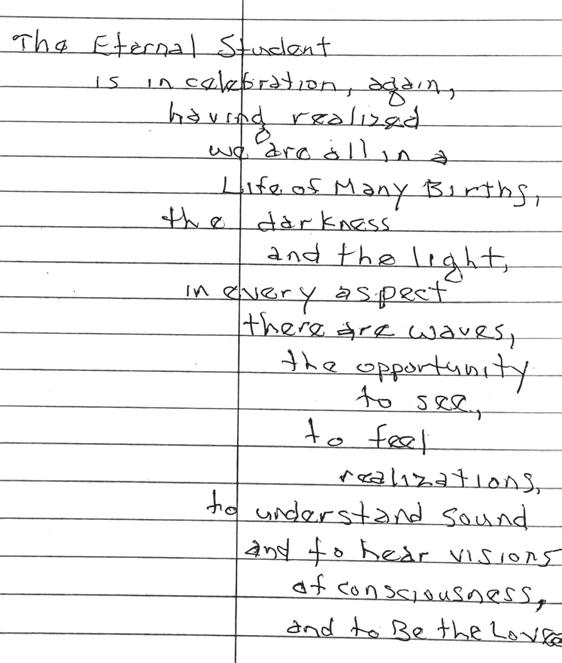 The Eternal Student
is in celebration, again,
having realized
we are all in a
Life of Many Births,
the darkness
and the light,
in every aspect
there are waves,
the opportunity
to see,
to feel
realizations,
to understand sound
and to hear visions
of consciousness,
and to Be the Love